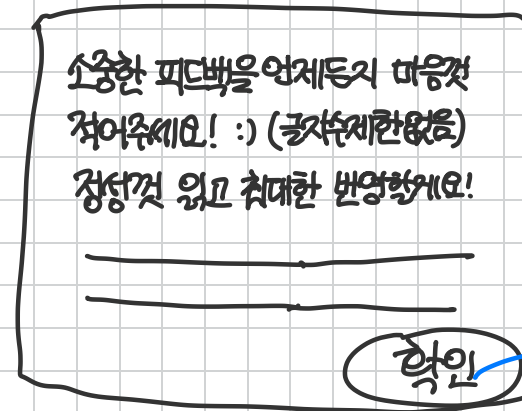 소중한 피드백을 언제든지 마음껏
적어주세요! :) (글자수제한없음)
정성껏 읽고 최대한 반영할게요!
확인